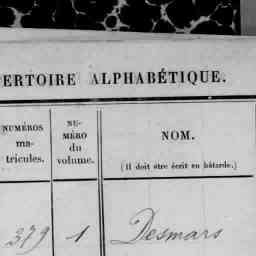 ERTOIRE ALPHABÉTIQUE.
NUMÉROS
ma-
tricules.
NU-
MÉRO
du
volume.
NOM.
(Il doit être écrit en bâtarde.)
379 1 Desmars